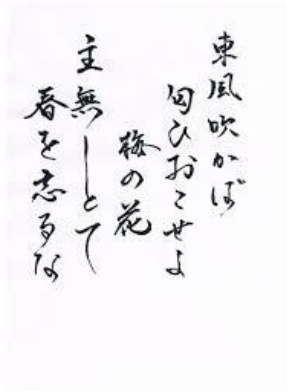 東風吹かば
匂ひおこせよ
梅の花
主無しとて
春を忘るな